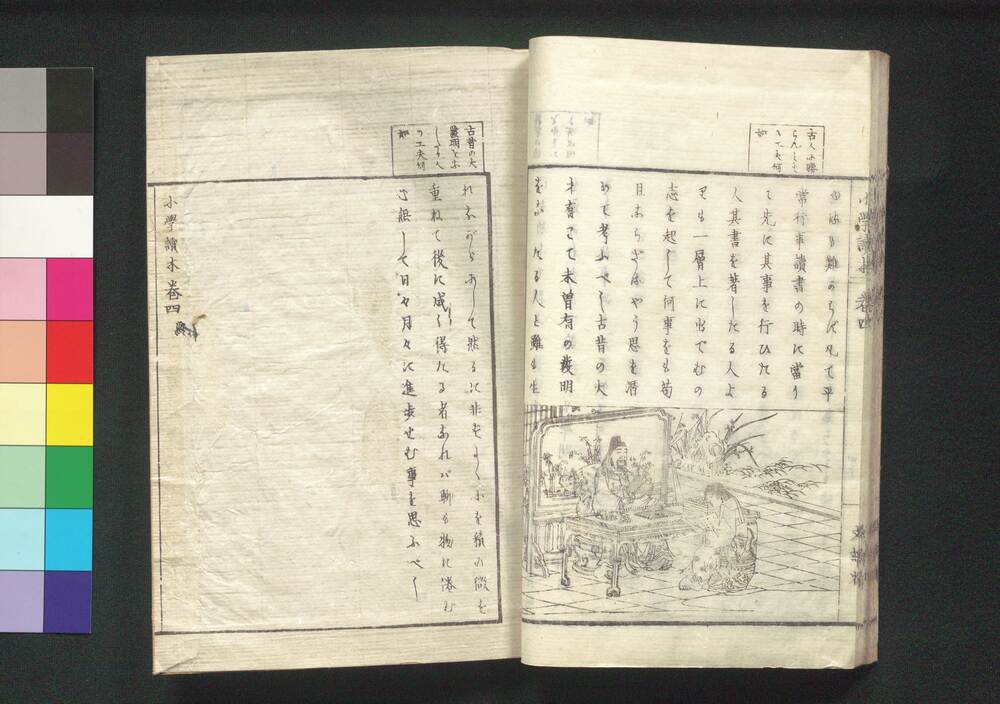 古人に勝
らんとするに
工夫何
如
難からず凡て平
常行事讀書の時に當り
て先に其事を行ひたる
人其書を著したる人よ
りも一層上に出でむの
志を起して何事をも苟
且ならざるやう思を潛
めて考ふべし古昔の大
才有て未曽有の發明
をなしたる人と雖も生
古昔の大
發明を
の工夫何
如
れながらにして然るに非ずよく小を積み微を
重ねて後に成し得たる者なれバ聊も物に倦む
心無して日々月々に進歩せむ事を思ふべし
小學讀本卷四
小學讀本 卷四